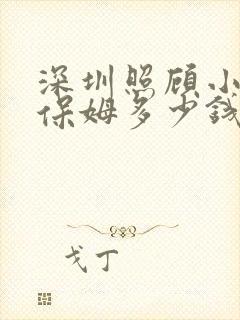 深圳照顾小
保姆多少钱
戈丁